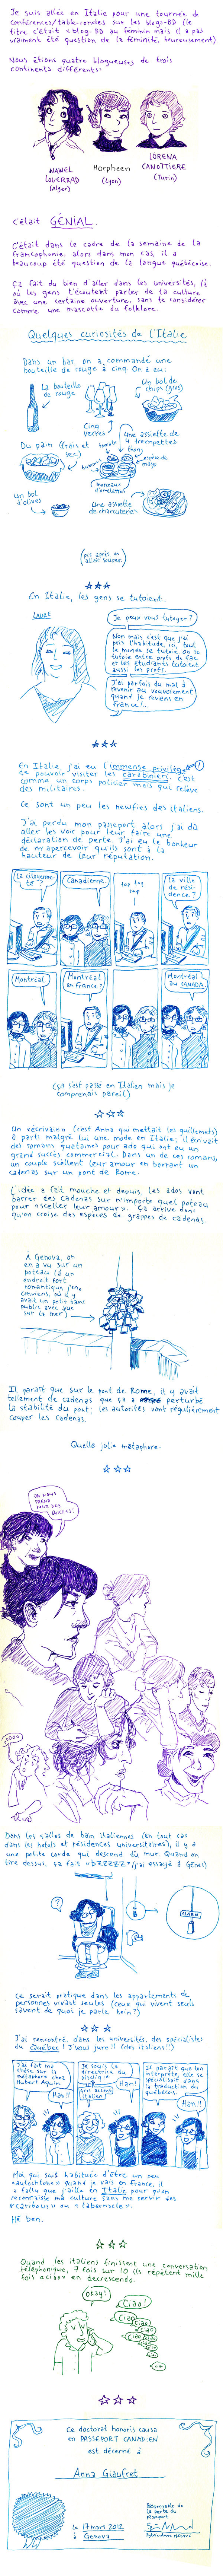 Je suis allée en Italie pour une tournée de
conférences/table-rondes sur les blogs-BD (le
titre c'était « blog-BD au féminin mais il a pas
vraiment été question de la féminité, heureusement).
Nous étions quatre blogueuses de trois
continents différents:
NAWEL
LOUERRAD
(Alger)
Morpheen
(Lyon)
LORENA
CANOTTIERE
(Turin)
C'était GÉNIAL.
C'était dans le cadre de la semaine de la
francophonie. alors dans mon cas, il a
beaucoup été question de la langue québécoise.
Ça fait du bien d'aller dans les universités, là
où les gens t'écoutent parler de ta culture
avec une certaine ouverture, sans te considérer
comme une mascotte du folklore.
Quelques curiosités de l'Italie
Dans un bar, on a commandé une
bouteille de rouge à cinq. On a eu:
La bouteille
de rouge
Cinq
verres
Un bol de
chips (gros)
Du pain
(frais et
sec)
Une assiette de
4 trempettes
tomate
thon
houmous
espèce de
mayo
morceaux
d'omelettes
Un bol
d'olives
Une assiette
de charcuteries
(pis après on
allait souper.
En Italie, les gens se tutoient.
LAURE
Je peux vous tutoyer?
Non mais c'est que j'ai
pris l'habitude, ici, tout
le monde se tutoie. On se
tutoie entre profs de fac
et les étudiants tutoient
aussi les profs.
J'ai parfois du mal à
revenir au vouvoiement
quand je reviens en
france!...
En Italie, j'ai eu l'immense privilège
de pouvoir visiter les carabinieri. c'est
comme un corps policier mais qui relève
des militaires.
Ce sont un peu les newfies des italiens.
J'ai perdu mon passeport alors j'ai dû
aller les voir pour leur faire une
déclaration de perte. J'ai eu le bonheur
de m'apercevoir qu'ils sont à la
hauteur de leur réputation.
La citoyenne-
té?
Canadienne.
tap tap
tap
La ville
de rési-
dence?
Montréal
Montréal
en France?
Montréal
au CANADA.
(ça s'est passé en Italien mais je
comprenais pareil)
Un «écrivain» (c'est Anna qui mettait les guillemets)
a parti malgré lui une mode en Italie; il écrivait
des romans quétaines pour ado qui ont eu un
grand succès commercial. Dans un de ces romans,
un couple scellent leur amour en barrant un
cadenas sur un pont de Rome.
L'idée a fait mouche et depuis, les ados vont
barrer des cadenas sur n'importe quel poteau
pour «sceller leur amour». Ça arrive donc
qu'on croise des espèces de grappes de cadenas.
À Genova, on
en a vu sur un
poteau (à un
endroit fort
romantique, j'en
conviens, où il y
avait un petit banc
public avec vue
sur la mer)
Il paraît que sur le pont de Rome, il y avait
tellement de cadenas que ça a perturbé
la stabilité du pont; les autorités vont régulièrement
couper les cadenas.
Quelle jolie métaphore.
ON NOUS
PREND
POUR DES
QUICHES!
Dans les salles de bain italiennes (en tout cas
dans les hotels et résidences universitaires), il y a
une petite corde qui descend du mur. Quand on
tire dessus, ça fait «bzzzzzz» (j'ai essayé à Gênes)
?
ALARM
Ce serait pratique dans les appartements de
personnes vivant seules (ceux qui vivent seuls
savent de quoi je parle, hein?)
J'ai rencontré, dans les universités, des spécialistes
du Québec! J'vous jure!! (des italiens!!)
J'ai fait ma
thèse sur la
métaphore chez
Hubert Aquin.
Han!!
Je suis la
directrice du
Han!
gros accent
italien
Il paraît que ton
interprète, elle se
spécialisait dans
la traduction du
québécois.
Han!!
Moi qui suis habituée d'être un peu
«autochtone» quand je vais en france, il
a fallu que j'aille en Italie pour qu'on
reconnaisse ma culture sans me servir des
«caribous» ou «tabernacle».
Hé ben.
Quand les italiens finissent une conversation
téléphonique, 7 fois sur 10 ils répètent mille
fois «ciao» en decrescendo.
Okay!
Ciao!
Ciao
Ciao
Ciao
Ciao
Ciao
Ce doctorat honoris causa
en PASSEPORT CANADIEN
est décerné à
Anna Giaufret
le 17 mars 2012
à Genova
Responsable de
la perte du
passeport
Sylvie-Anne Ménard